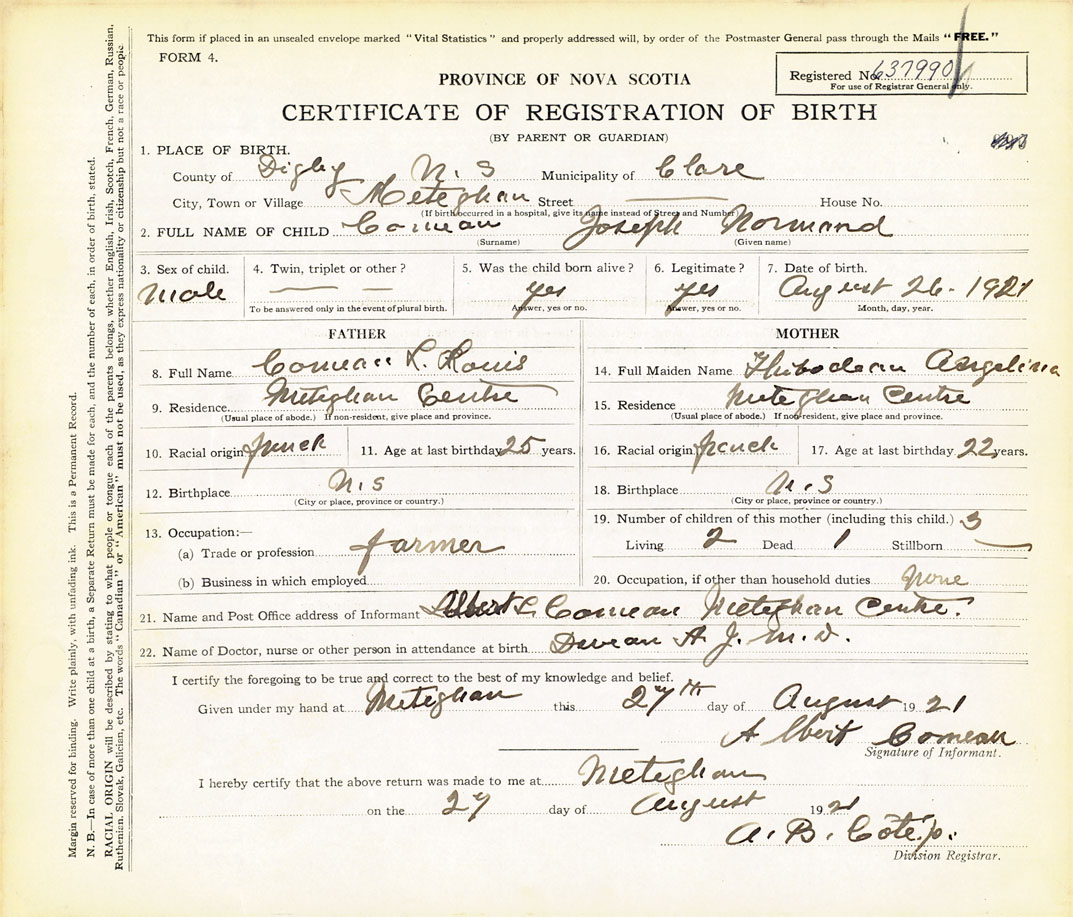 This form if placed in an unsealed envelope marked "Vital Statistics" and properly addressed will, by order of the Postmaster General pass through the Mails "FREE."
FORM 4.
Registered No. 637990
For use of Registrar General only.
PROVINCE OF NOVA SCOTIA
CERTIFICATE OF REGISTRATION OF BIRTH
(BY PARENT OR GUARDIAN)
1. PLACE OF BIRTH.
County of Digby N. S Municipality of Clare
City, Town or Village Meteghan Street House No.
(If birth occurred in a hospital, give its name instead of Street and Number)
2. FULL NAME OF CHILD Comeau Joseph Normand
(Surname) (Given name)
3. Sex of child. 4. Twin, triplet or other? 5. Was the child born alive? 6. Legitimate? 7. Date of birth.
Male — — yes yes August 26 - 1921
To be answered only in the event of plural birth. Answer, yes or no. Answer, yes or no. Month, day, year.
FATHER
8. Full Name Comeau L. Louis
9. Residence Meteghan Centre
(Usual place of abode.) If non-resident, give place and province.
10. Racial origin french 11. Age at last birthday 25 years.
12. Birthplace N. S
(City or place, province or country.)
13. Occupation:—
(a) Trade or profession farmer
(b) Business in which employed
MOTHER
14. Full Maiden Name Thibodeau Angelina
15. Residence Meteghan Centre
(Usual place of abode.) If non-resident, give place and province.
16. Racial origin french 17. Age at last birthday 22 years.
18. Birthplace N. S
(City or place, province or country.)
19. Number of children of this mother (including this child.) 3
Living 2 Dead 1 Stillborn —
20. Occupation, if other than household duties None
21. Name and Post Office address of Informant Albert L. Comeau Meteghan Centre.
22. Name of Doctor, nurse or other person in attendance at birth A. J. M. D.
I certify the foregoing to be true and correct to the best of my knowledge and belief.
Given under my hand at Meteghan this 27th day of August 1921
Albert Comeau
Signature of Informant.
I hereby certify that the above return was made to me at Meteghan
on the 27 day of August 1921
A. B. Coté
Division Registrar.
Margin reserved for binding. Write plainly, with unfading ink. This is a Permanent Record.
N. B.—In case of more than one child at a birth, a Separate Return must be made for each, and the number of each, in order of birth, stated.
RACIAL ORIGIN will be described by stating to what people or tongue each of the parents belongs, whether English, Irish, Scotch, French, German, Russian,
Ruthenian, Slovak, Galician, etc. The words "Canadian" or "American" must not be used, as they express nationality or citizenship but not a race or people.